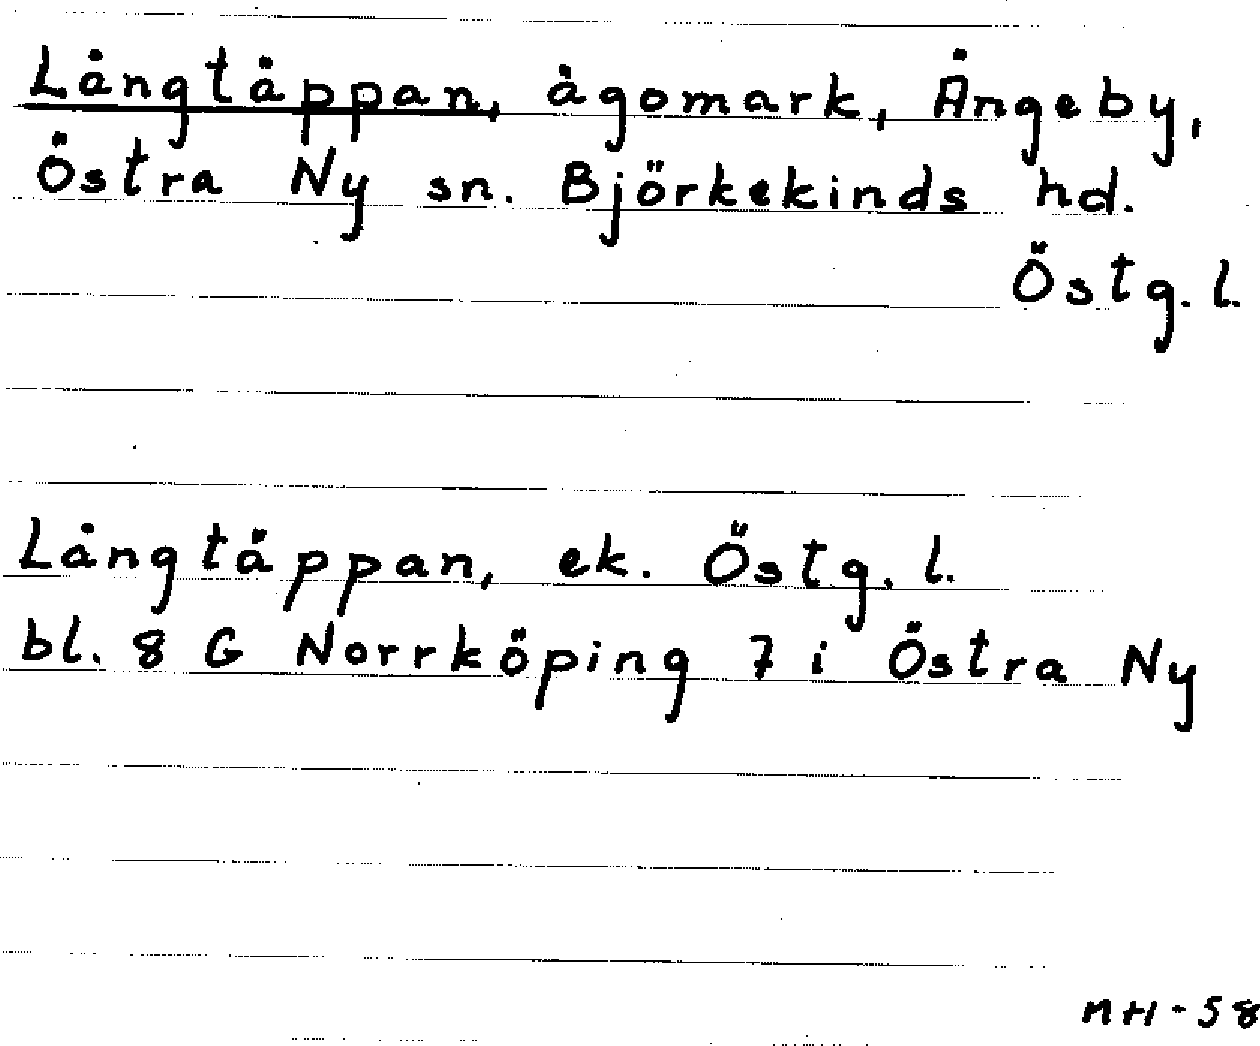 Långtäppan, ägomark, Ängeby,
Östra Ny sn. Björkekinds hd.
Östg. l.
Långtäppan, ek. Östg. l.
bl. 8 G Norrköping 7 i Östra Ny
NH-58